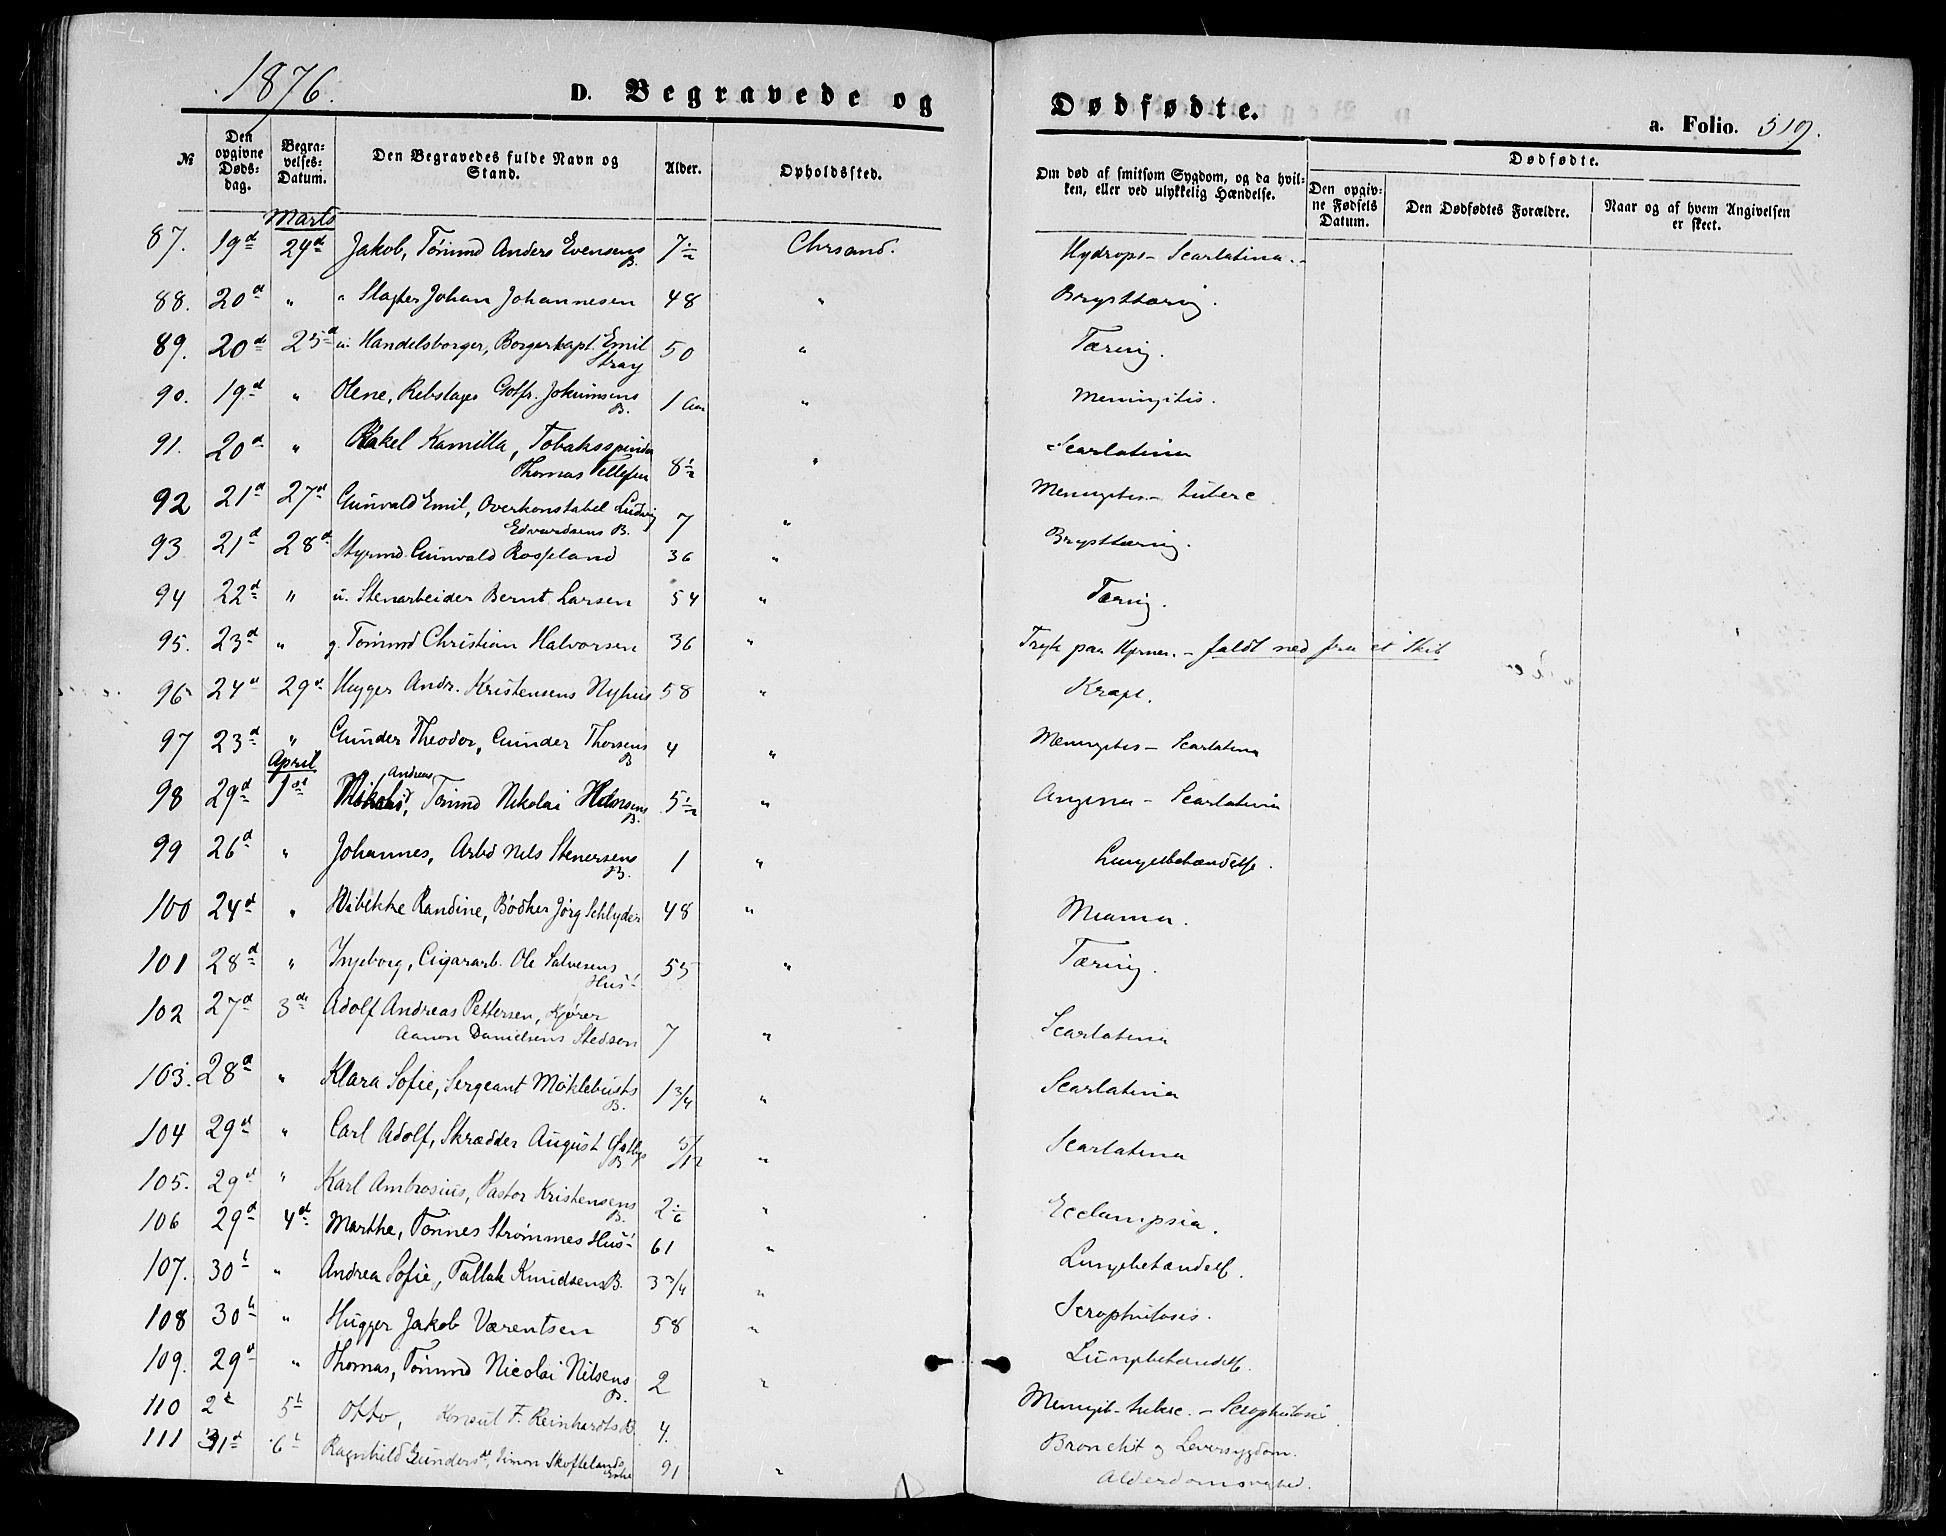 1876.
D. Begravede og Dødfødte.
a. Folio. 519.
№ | Den opgivne Døds-dag. | Begra-velses-Datum. | Den Begravedes fulde Navn og Stand. | Alder. | Opholdssted. | Om død af smitsom Sygdom, og da hvil-ken, eller ved ulykkelig Hændelse. | Dødfødte. Den opgiv-ne Fødsels Datum. | Den Dødfødtes Forældre. | Naar og af hvem Angivelsen er skeet.
Marts
87. 19d 24d Jakob, Tømmd Anders Evensens B. 7½ Chrsand. Hydrops - Scarlatina. -
88. 20d " " Slagter Johan Johannesen 48 " Brysttæring.
89. 20de 25d u. Handelsborger, Borgerkapt. Emil Stray 50 " Tæring.
90. 19d " Olene, Rebslager Gotfr. Jokumsens B. 1 Aar " Meningitis.
91. 20d " Rakel Kamilla, Tobaksspinder Thomas Tellefsen 8½ " Scarlatina
92 21d 27d Gunvald Emil, Overkonstabel Ludvig Edvardsens B. 7 " Meningitis - tuberc
93 21d 28d Styrmd. Gunvald Rosseland 36 " Brysttæring.
94 22d " u. Stenarbeider Bernt Larsen 54 " Tæring.
95. 23d " g. Tømmd Christian Halvorsen 36 " Tryk paa Hjernen. - faldt ned fra et Skib
96 24d 29d Hugger Andr. Kristensens Nyhus 58 " Kræft.
97 23d " Gunder Theodor, Gunder Thorsens B 4 " Meningitis - Scarlatina
April
98 29d 1st Andreas, Tømmd Nikolai B. 5½ " Angina - Scarlatina
99 26d " Johannes, Arbd Nils Stenersens B. 1 " Lungebetændelse.
100 24d " Wibekke Randine, Bødker Jørg Schlyder 48 "
101 28d " Ingeborg, Cigararb. Ole Salvesens Hus! 55 " Tæring.
102 27d 3de Adolf Andreas Pettersen, Kjører Aanon Danielsens Stedsøn 7 " Scarlatina
103. 28d " Klara Sofie, Sergeant Møklebusts B. 1 3/4 " Scarlatina
104 29d " Carl Adolf, Skrædder August B. 5/12 " Scarlatina
105. 29d " Karl Ambrosius, Pastor Kristensens B. 2 1/6 " Ecclampsia.
106 29d 4d Marthe, Tønnes Strømmes Hus! 61 " Lungebetændelse.
107. 30t " Andrea Sofie, Tallak Knudsens B. 3 3/4 " Scrophulosis.
108 30t " Hugger Jakob Værentsen 58 " Lungebetændelse.
109. 29d " Thomas, Tømmd Nicolai Nilsens B. 2 " Meningit - tuberc. - Scrophulosis
110 2d 5t Otto, Konsul F. Reinhardts B. 4. Bronchit og Leversygdom.
111 31d 6t Ragnhild Gundersd., Simon Skoftelands Enke 91 " Alderdomssvaghed.